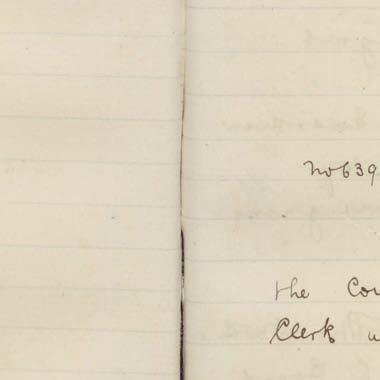 No 639
the Cou
Clerk w